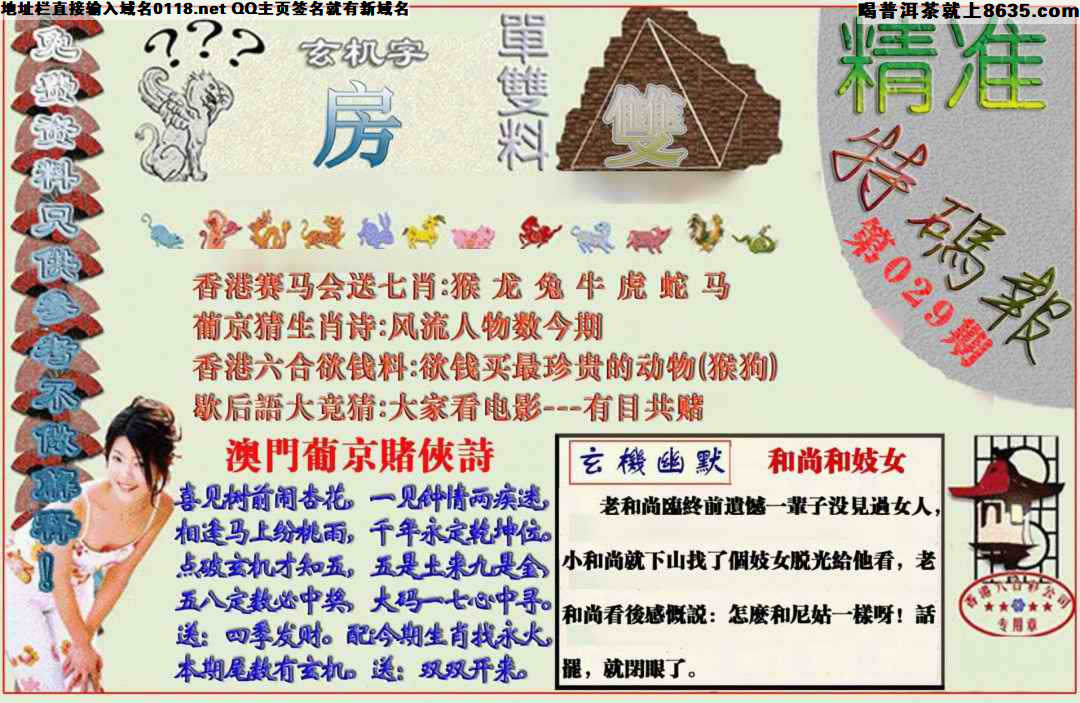 地址栏直接输入域名0118.net QQ主页签名就有新域名
喝普洱茶就上8635.com
免费资料只供参考不做解释!
???
玄机字
房
單雙料
雙
精准
特碼報
第029期
香港赛马会送七肖:猴 龙 兔 牛 虎 蛇 马
葡京猜生肖诗:风流人物数今期
香港六合欲钱料:欲钱买最珍贵的动物(猴狗)
歇后語大竞猜:大家看电影---有目共赌
澳門葡京賭俠詩
喜见树前闹杏花, 一见钟情两疾迷,
相逢马上纷桃雨, 千年永定乾坤位。
点破玄机才知五, 五是土来九是金,
五八定数必中奖, 大码一七心中寻。
送: 四季发财。配:今期生肖找永火,
本期尾数有玄机。送: 双双开来。
玄機幽默
和尚和妓女
老和尚臨終前遺憾一輩子没見過女人,
小和尚就下山找了個妓女脱光給他看, 老
和尚看後感慨説: 怎麽和尼姑一樣呀! 話
罷, 就閉眼了。
香港六合彩公司
专用章